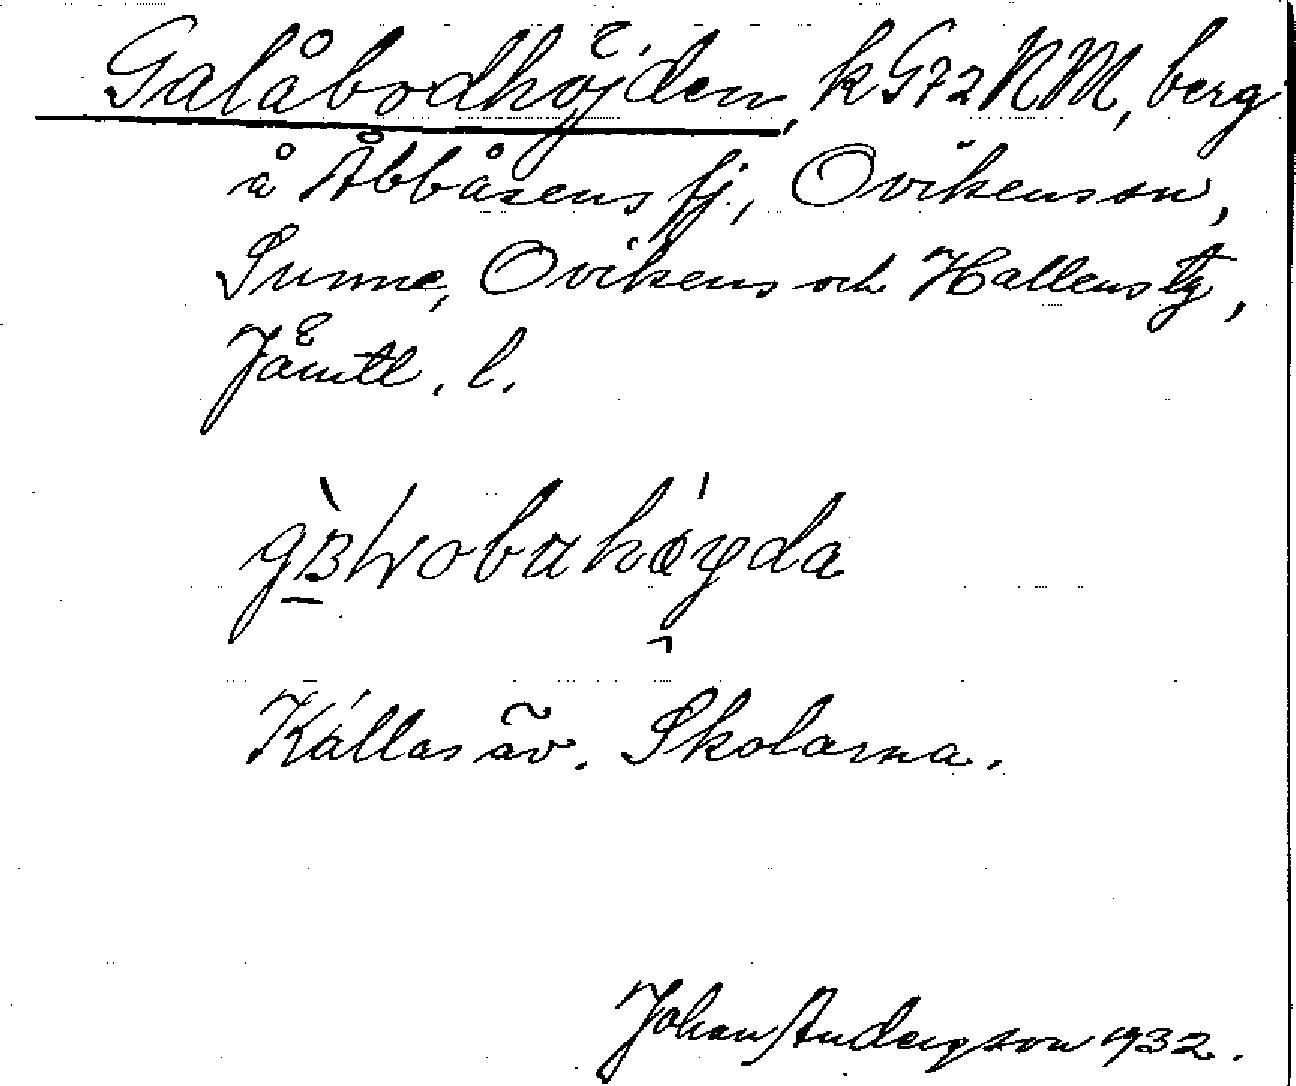 Galåbodhöjden, k G72NM, berg
å Åbbåsens fj., Oviksens sn,
Sunne, Ovikens och Hallens tg,
Jämtl. l.
Kallas äv. Skolarna.
Johan Andersson 1932.